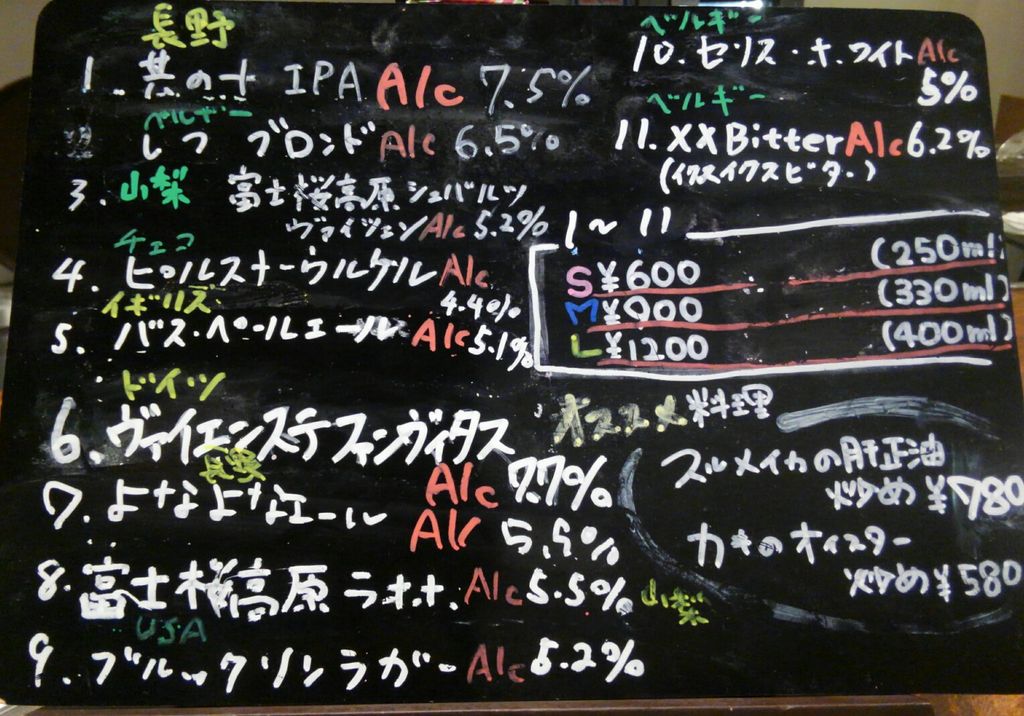 長野
1. 其の十 IPA Alc 7.5%
ベルギー
レフ ブロンド Alc 6.5%
3. 山梨 富士桜高原 シュバルツ
ヴァイツェン Alc 5.2%
チェコ
4. ピルスナーウルケル Alc
4.4%
イギリス
5. バス・ペールエール Alc 5.1%
ドイツ
6. ヴァイエンステファンヴィタス
Alc 7.7%
長野
7. よなよなエール Alc 5.5%
8. 富士桜高原 ラオホ. Alc 5.5% 山梨
USA
9. ブルックリンラガー Alc 5.2%
ベルギー
10. セリス・ホワイト Alc
5%
ベルギー
11. XX Bitter Alc 6.2%
(イクスイクスビター)
1~11
S ¥600 (250ml)
M ¥900 (330ml)
L ¥1200 (400ml)
オススメ料理
スルメイカの肝正油
炒め ¥780
カキのオイスター
炒め ¥580